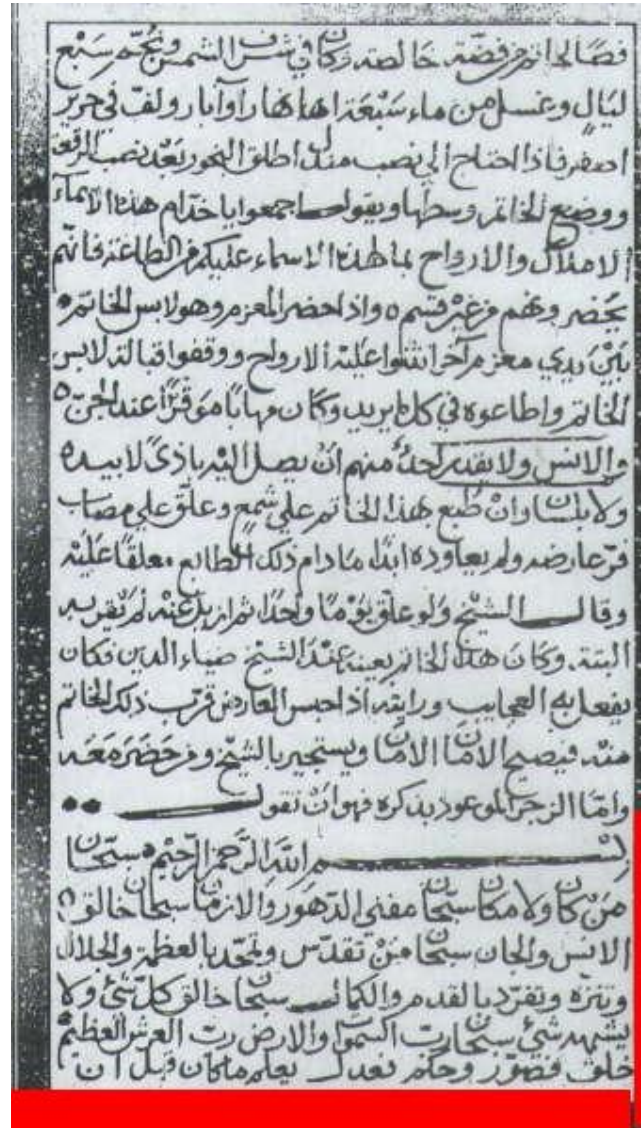 فصّا لخاتم من فضّة خالصة وكان في شرف الشمس ونجّم سبع
ليالٍ وغسل من ماء سَبْعَة انهار وآبار ولفّ في حرير
اصفر فاذا احتاج الي نصب مندل اطلق البخور بَعْد نصب
ووضع الخاتم وسطها ويقول اجمعوا يا خدّام هذه الاسمآء
الاملاك والارواح بما لهذه الاسماء عليكم من الطاعة فانّهم
يحضرونهم من غير قسم ه واذا حضر المعزم وهو لابس الخاتم
بَيْن يدي معزم آخر الارواح ووقفوا قبالة لابس
الخاتم واطاعوه في كل ما يريد وكان مهابًا موقرًا عند الجنّ
والانس ولا يقدر احدٌ منهم انْ يصل اليْه باذىً لا بيده
ولا بلسان وانْ طبع بهذا الخاتم علي شمع وعلّق علي مصاب
فرّ عارضه ولم يعاوده ابدًا مادام ذلك الطابع معلقًا عليْه
وقال الشيْخ ولو علّق يوْمًا واحدًا ثم ازيل عنْه لم يقربه
البتة وكان هذا الخاتم بعينه عنْد الشيْخ ضياء الدين فكان
يفعل به العجايب ورايته اذا حبس العارض قرّب ذلك الخاتم
منه فيصيح الامان الامان ويستجير بالشيْخ ومن حضر معه
وامّا الزجر الموعود بذكره فهو انْ تقول
بسم الله الرّحمن الرّحيم ه سبحان
منْ كان ولا مكان سبحان مفني الدّهور والازمان سبحان خالق
الانس والجان سبحان منْ تقدّس وتمجّد بالعظمة والجلال
وتنزّه وتفرّد بالقدم والكمال سبحان خالق كلّ شئ ولا
يشبهه شئ سبحان ربّ السموات والارض ربّ العرش العظيم
خلق فصوّر وحكم فعدل يعلم ماكان قبل ان